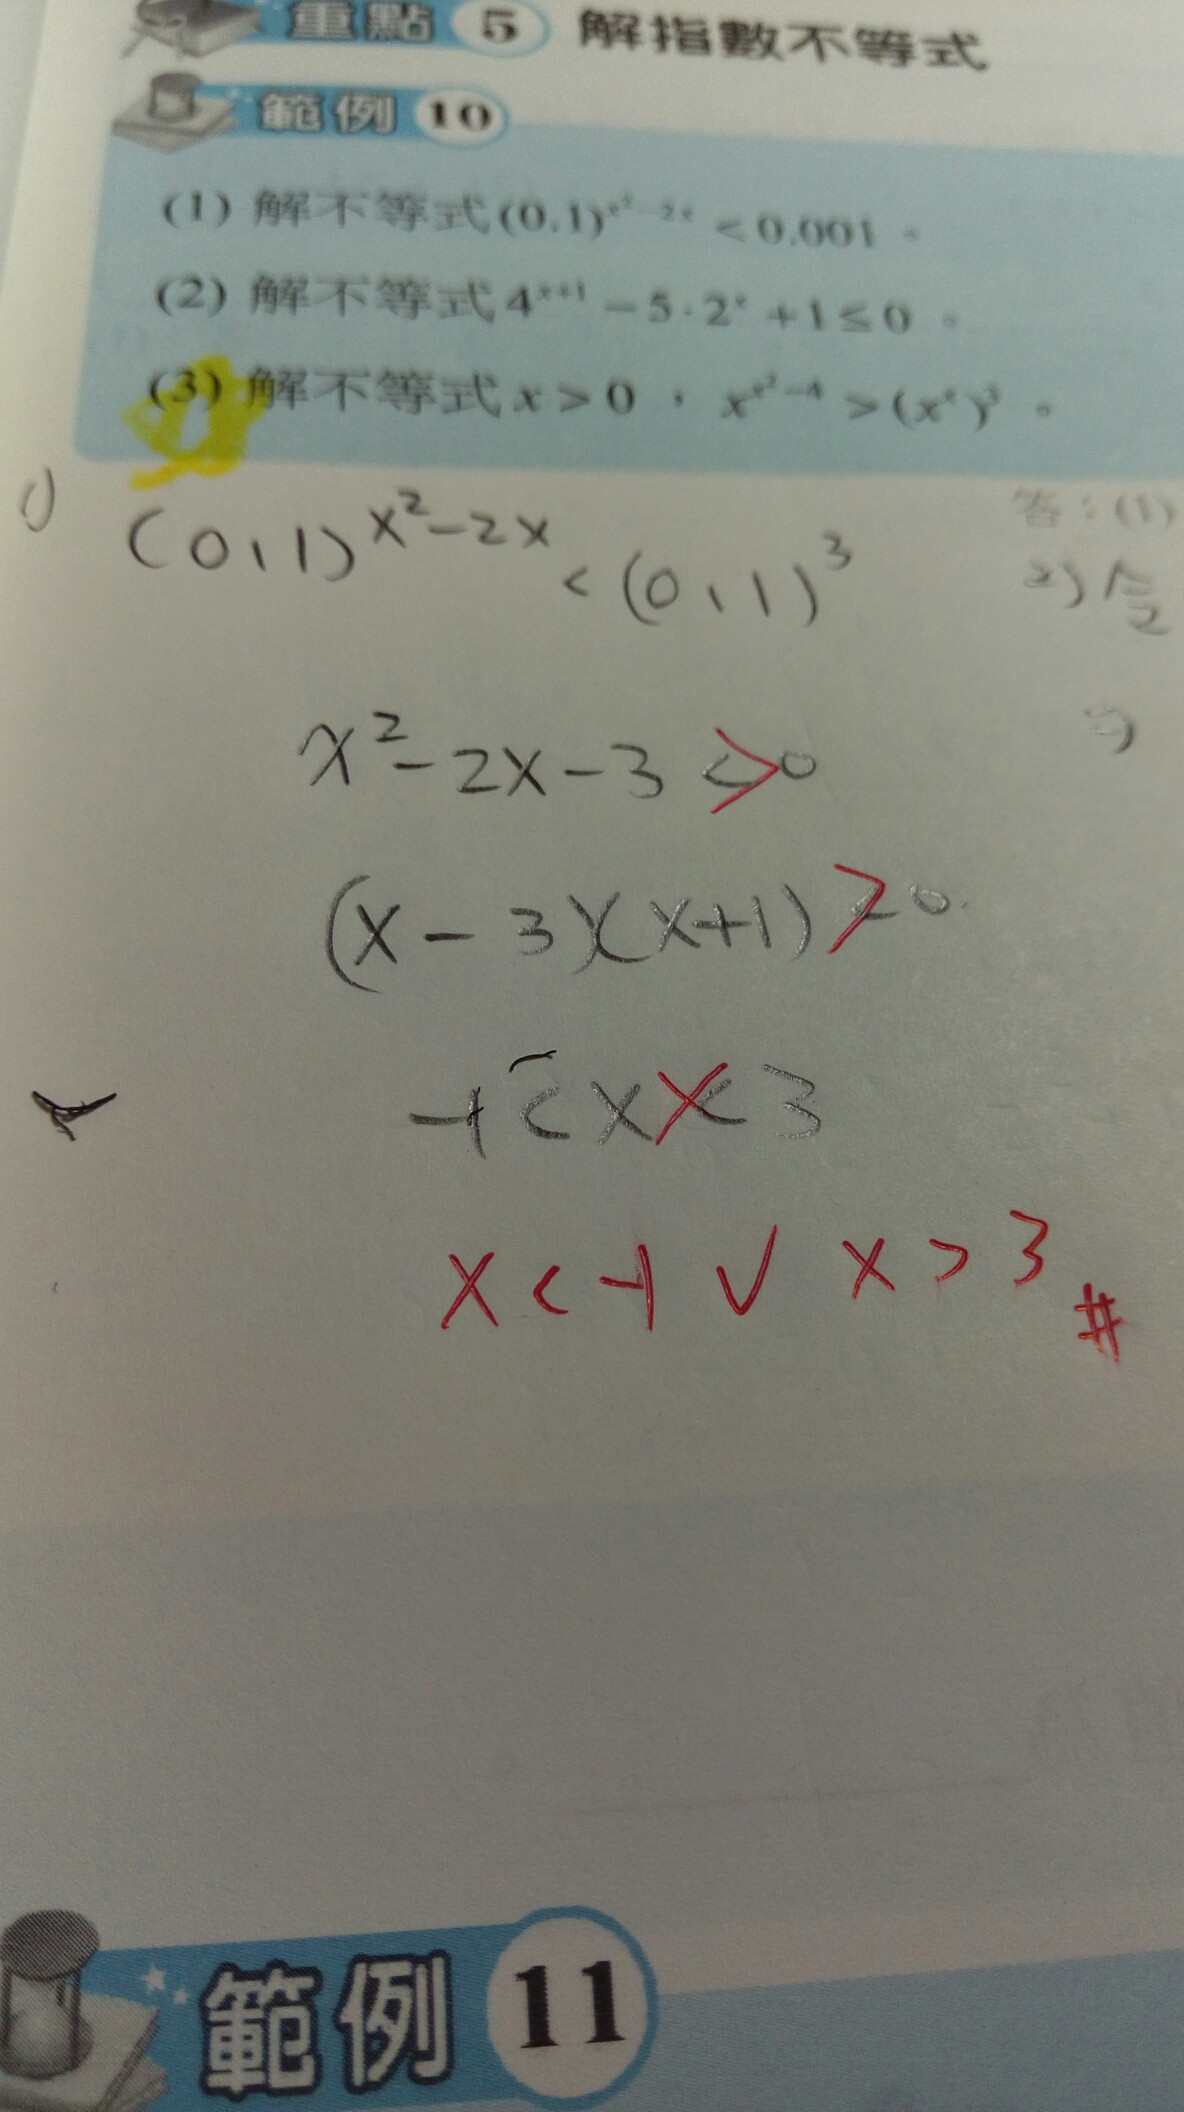 重點 5 解指數不等式
範例 10
(1) 解不等式(0.1)^{x²-2x} < 0.001。
(2) 解不等式 4^{x+1} - 5·2^x + 1 ≤ 0。
(3) 解不等式 x > 0，x^{x²-4} > (x^x)³。
答：(1)
1) (0.1)^{x²-2x} < (0.1)³
2)
x²-2x-3 > 0
(x-3)(x+1) > 0
-1 < x < 3
x < -1 ∨ x > 3 #
範例 11